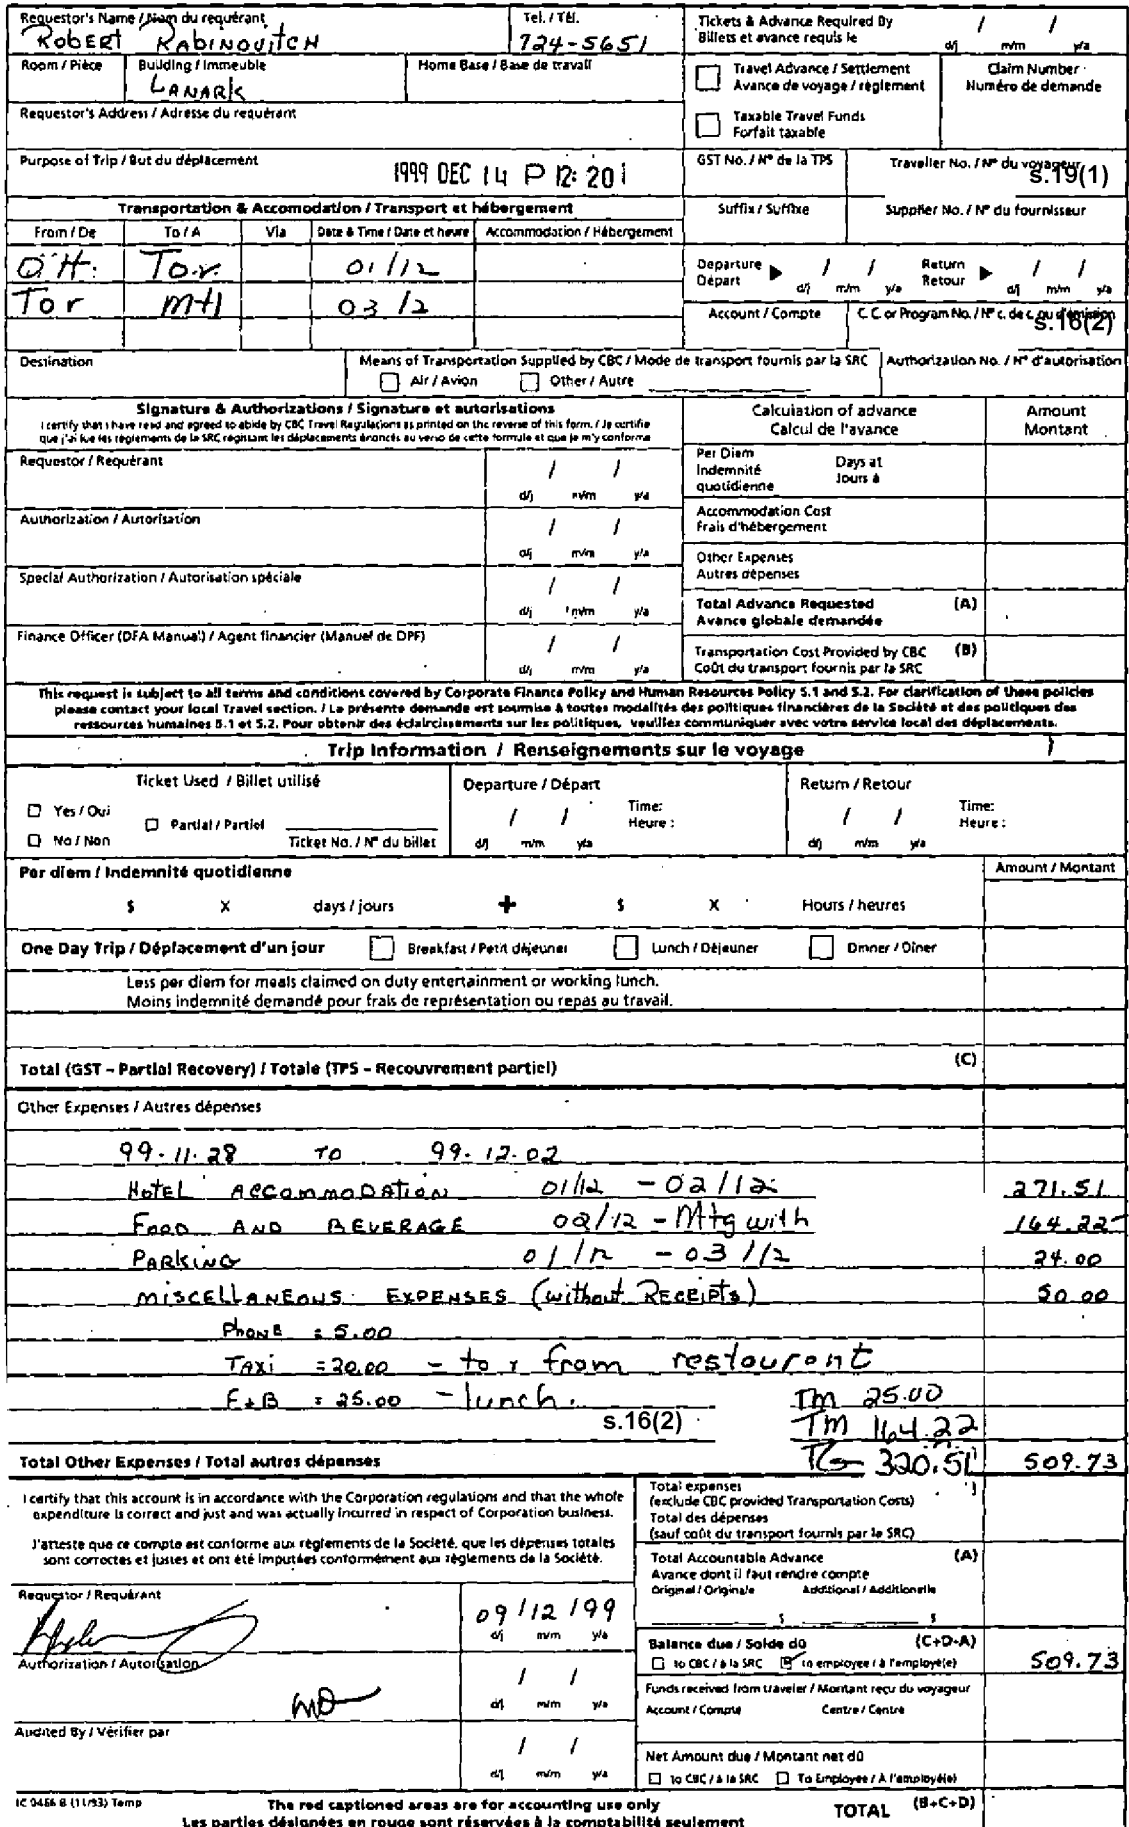 Requestor's Name / Nom du requérant
Robert Rabinovitch
Tel. / Tél.
724-5651
Tickets & Advance Required By
Billets et avance requis le
/ /
d/j m/m y/a
Room / Pièce
Building / Immeuble
Lanark
Home Base / Base de travail
Travel Advance / Settlement
Avance de voyage / règlement
Claim Number
Numéro de demande
Requestor's Address / Adresse du requérant
Taxable Travel Funds
Forfait taxable
Purpose of Trip / But du déplacement
1999 DEC 14 P 12:20
GST No. / Nº de la TPS
Traveller No. / Nº du voyageur
s.19(1)
Transportation & Accomodation / Transport et hébergement
Suffix / Suffixe
Supplier No. / Nº du fournisseur
From / De To / A Via Date & Time / Date et heure Accommodation / Hébergement
OTT. Tor. 01/12
Tor Mtl 03/2
Departure
Départ
/ /
d/j m/m y/a
Return
Retour
/ /
d/j m/m y/a
Account / Compte
C.C. or Program No. / Nº c. de c. ou d'émission
s.16(2)
Destination
Means of Transportation Supplied by CBC / Mode de transport fournis par la SRC
Air / Avion Other / Autre
Authorization No. / Nº d'autorisation
Signature & Authorizations / Signature et autorisations
I certify that I have read and agreed to abide by CBC Travel Regulations as printed on the reverse of this form. / Je certifie
que j'ai lue les règlements de la SRC régissant les déplacements énoncés au verso de cette formule et que je m'y conforme
Calculation of advance
Calcul de l'avance
Amount
Montant
Requestor / Requérant
/ /
d/j m/m y/a
Per Diem
Indemnité
quotidienne
Days at
Jours à
Authorization / Autorisation
/ /
d/j m/m y/a
Accommodation Cost
Frais d'hébergement
Other Expenses
Autres dépenses
Special Authorization / Autorisation spéciale
/ /
d/j m/m y/a
Total Advance Requested (A)
Avance globale demandée
Finance Officer (DFA Manual) / Agent financier (Manuel de DPF)
/ /
d/j m/m y/a
Transportation Cost Provided by CBC (B)
Coût du transport fournis par la SRC
This request is subject to all terms and conditions covered by Corporate Finance Policy and Human Resources Policy 5.1 and 5.2. For clarification of these policies
please contact your local Travel section. / La présente demande est soumise à toutes modalités des politiques financières de la Société et des politiques des
ressources humaines 5.1 et 5.2. Pour obtenir des éclaircissements sur les politiques, veuillez communiquer avec votre service local des déplacements.
Trip Information / Renseignements sur le voyage
Ticket Used / Billet utilisé
Yes / Oui
No / Non
Partial / Partiel
Ticket No. / Nº du billet
Departure / Départ
/ /
d/j m/m y/a
Time:
Heure :
Return / Retour
/ /
d/j m/m y/a
Time:
Heure :
Per diem / Indemnité quotidienne
Amount / Montant
$ X days / jours + $ X Hours / heures
One Day Trip / Déplacement d'un jour Breakfast / Petit déjeuner Lunch / Déjeuner Dinner / Dîner
Less per diem for meals claimed on duty entertainment or working lunch.
Moins indemnité demandé pour frais de représentation ou repas au travail.
Total (GST – Partial Recovery) / Totale (TPS – Recouvrement partiel) (C)
Other Expenses / Autres dépenses
99.11.28 TO 99.12.02
Hotel Accommodation 01/12 - 02/12 271.51
Food and Beverage 02/12 - Mtg with 164.22
Parking 01/12 - 03/12 24.00
Miscellaneous Expenses (without Receipts) 50.00
Phone = 5.00
Taxi = 20.00 - to & from restaurent
F+B = 25.00 - lunch.
TM 25.00
s.16(2)
TM 164.22
Total Other Expenses / Total autres dépenses
TG 320.51
509.73
I certify that this account is in accordance with the Corporation regulations and that the whole
expenditure is correct and just and was actually incurred in respect of Corporation business.
J'atteste que ce compte est conforme aux règlements de la Societé, que les dépenses totales
sont correctes et justes et ont été imputées conformément aux règlements de la Société.
Total expenses
(exclude CBC provided Transportation Costs)
Total des dépenses
(sauf coût du transport fournis par la SRC)
Total Accountable Advance (A)
Avance dont il faut rendre compte
Original / Originale Additional / Additionelle
$ $
Requestor / Requérant
09/12/99
d/j m/m y/a
Balance due / Solde dû (C+D-A)
to CBC / à la SRC to employee / à l'employé(e)
509.73
Authorization / Autorisation
/ /
d/j m/m y/a
Funds received from traveler / Montant reçu du voyageur
Account / Compte Centre / Centre
Audited By / Vérifier par
/ /
d/j m/m y/a
Net Amount due / Montant net dû
to CBC / à la SRC To Employee / À l'employé(e)
IC 0456 B (11/93) Temp
The red captioned areas are for accounting use only
Les parties désignées en rouge sont réservées à la comptabilité seulement
TOTAL (B+C+D)